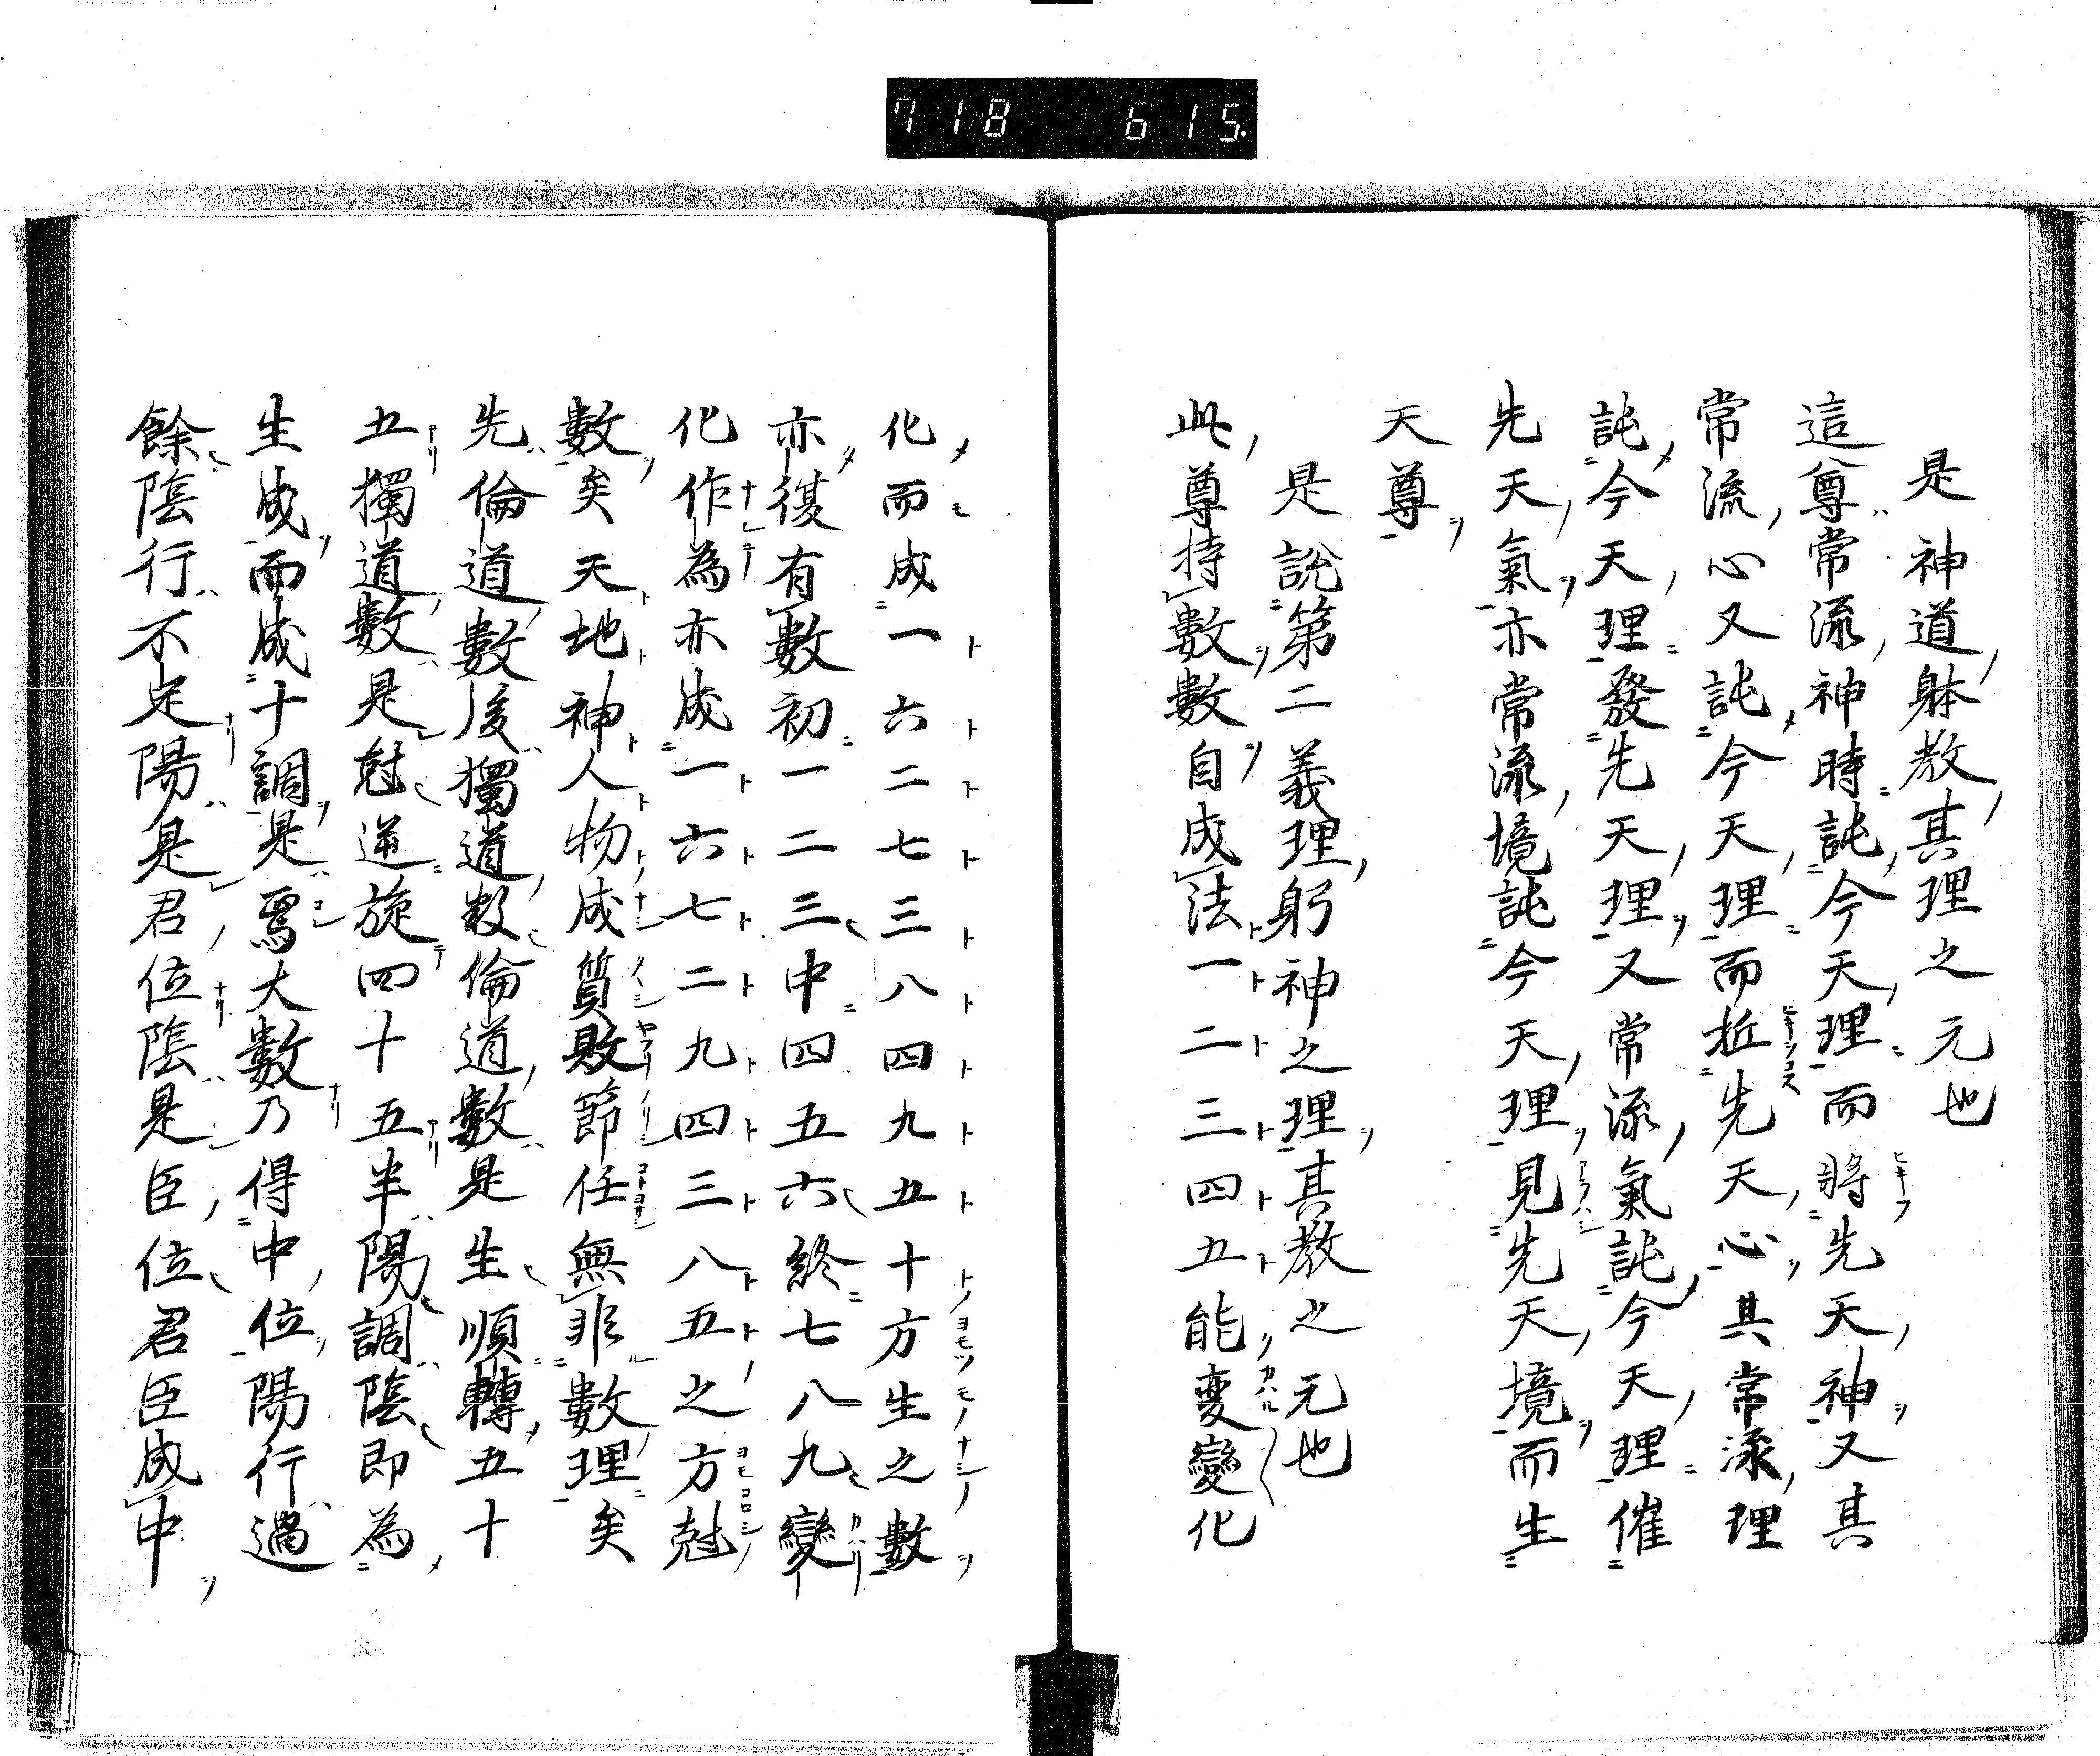 718 615.
是神道躰教其理之元也
這尊常流神時詑今天理而将先天神又其
常流心又詑今天理而拆先天心其常流理
詑今天理發先天理又常流氣詑今天理催
先天氣亦常流境詑今天理見先天境而生
天尊
是說第二義理躬神之理其教之元也
此尊持數數自成法一二三四五能変變化
化而成一六二七三八四九五十方生之數
亦復有數初一二三中四五六終七八九變
化作為亦成一六七二九四三八五之方尅
數矣天地神人物成質敗節任無非數理矣
先倫道數後獨道数倫道數是生順轉五十
五獨道數是尅逆旋四十五半陽調陰即為
生成而成十調是焉大數乃得中位陽行過
餘陰行不足陽是君位陰是臣位君臣成中